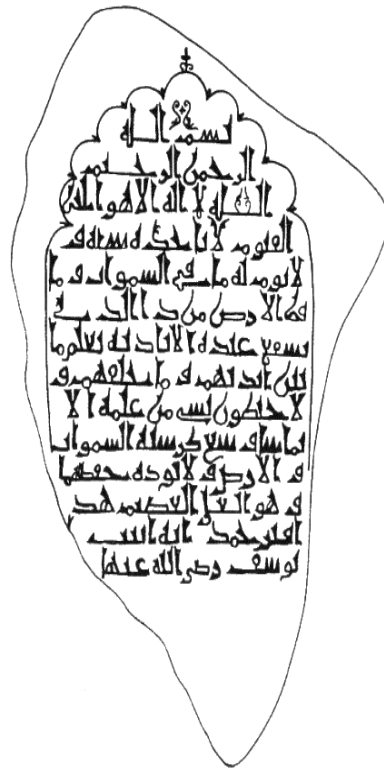 بسم الله
الرحمن الرحيم
الله لا اله الا هو الحي
القيوم لا تاخذه سنه و
لا نوم له ما في السموات و ما
في الارض من ذا الذي
يشفع عنده الا باذنه يعلم ما
بين ايديهم و ما خلفهم و
لا يحيطون بشي من علمه الا
بما شا وسع كرسيه السموات
و الارض و لا يوده حفظهما
و هو العلي العظيم هذ
ا قبر ابنه
يوسف رضي الله عنها